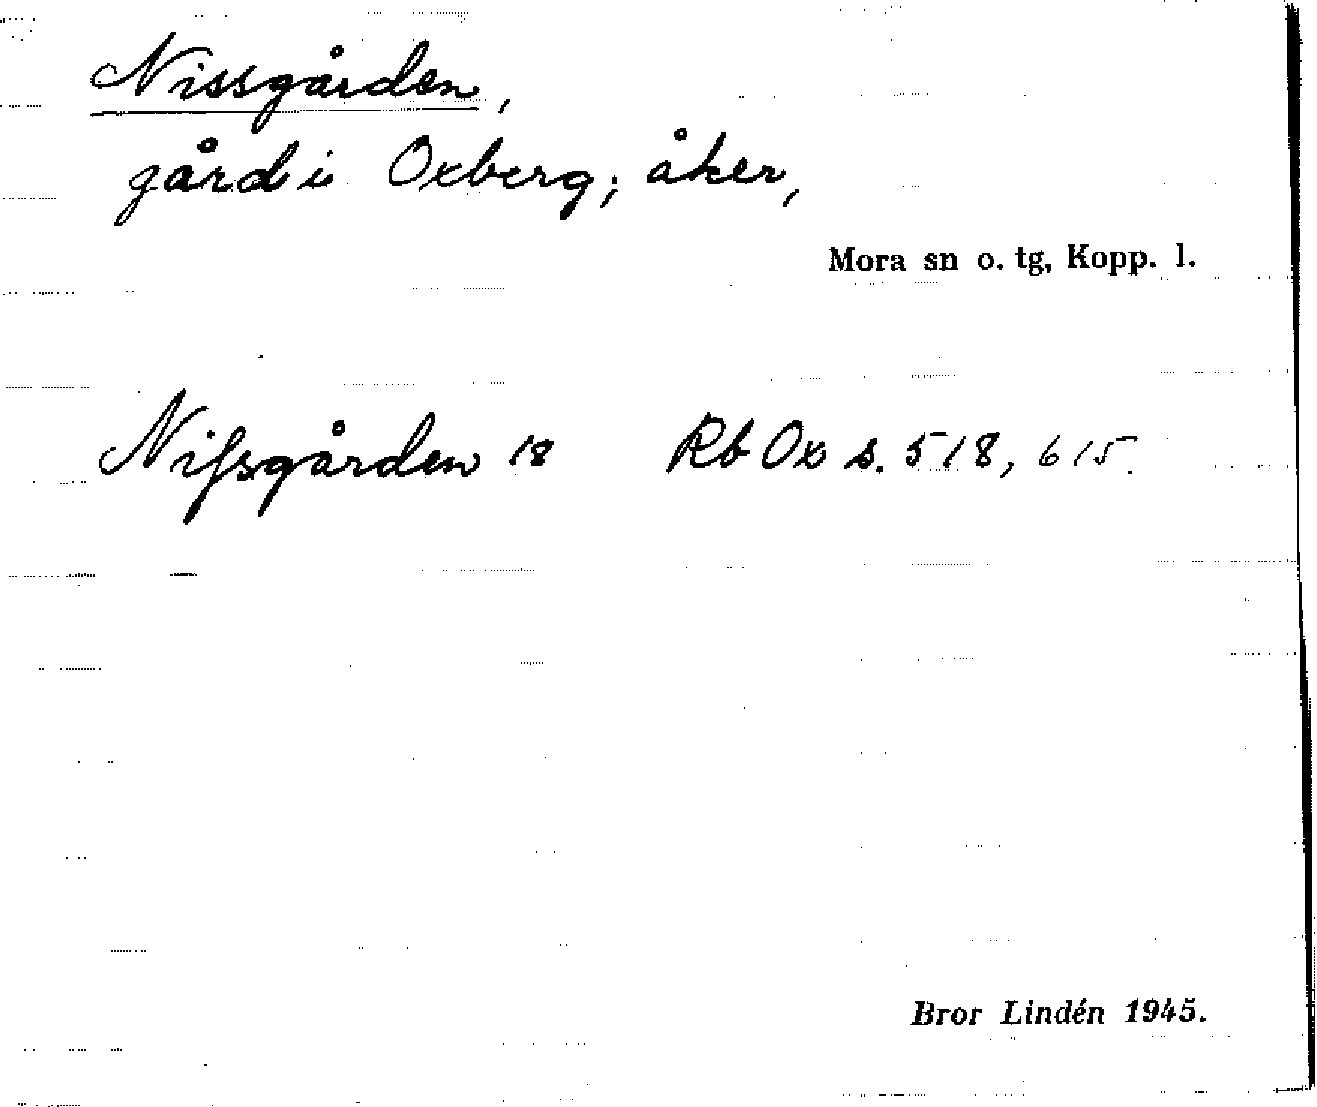 Nissgården,
gård i Oxberg; åker,
Mora sn o. tg, Kopp. l.
Nifsgården 18 Rb Ox s. 518, 615.
Bror Lindén 1945.